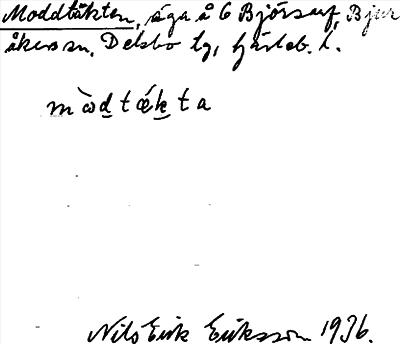 Moddtäkten, äga å 6 Björsarf, Bjur
åkers sn, Delsbo tg, Gävleb. l.
mòdtǽkta
Nils Eirik Eriksson 1936.